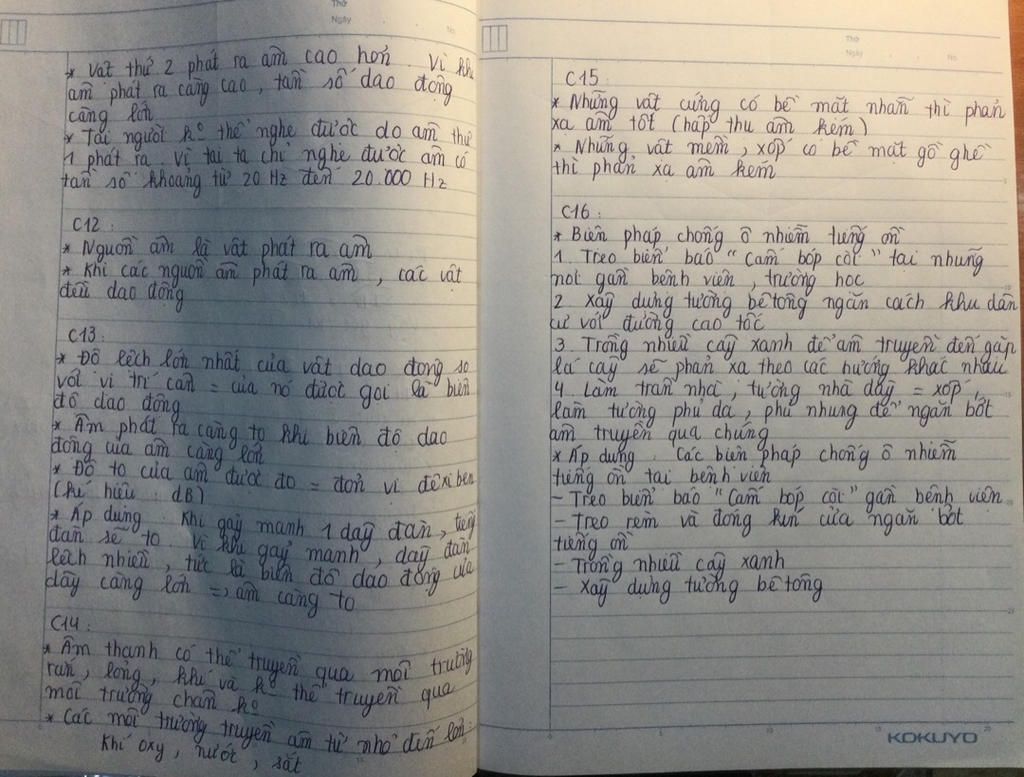 Thứ
Ngày
No.
* Vật thứ 2 phát ra âm cao hơn. Vì khi
âm phát ra càng cao, tần số dao động
càng lớn
* Tai người ko thể nghe được do âm thứ
1 phát ra. Vì tai ta chỉ nghe được âm có
tần số khoảng từ 20 Hz đến 20.000 Hz
C12:
* Nguồn âm là vật phát ra âm
* Khi các nguồn âm phát ra âm, các vật
đều dao động
C13:
* Độ lệch lớn nhất của vật dao động so
với vị trí cân = của nó được gọi là biên
độ dao động
* Âm phát ra càng to khi biên độ dao
động của âm càng lớn
* Độ to của âm được đo = đơn vị đêxiben
(kí hiệu: dB)
* Áp dụng: Khi gảy mạnh 1 dây đàn, tiếng
đàn sẽ to. Vì khi gảy mạnh, dây đàn
lệch nhiều, tức là biên độ dao động của
dây càng lớn => âm càng to
C14:
* Âm thanh có thể truyền qua môi trường
rắn, lỏng, khí và ko thể truyền qua
môi trường chân ko
* Các môi trường truyền âm từ nhỏ đến lớn:
Khí oxy, nước, sắt
Thứ
Ngày
No.
C15:
* Những vật cứng có bề mặt nhẵn thì phản
xạ âm tốt (hấp thụ âm kém)
* Những vật mềm, xốp có bề mặt gồ ghề
thì phản xạ âm kém
C16:
* Biện pháp chống ô nhiễm tiếng ồn
1. Treo biển báo "Cấm bóp còi" tại những
nơi gần bệnh viện, trường học
2. Xây dựng tường bêtông ngăn cách khu dân
cư với đường cao tốc
3. Trồng nhiều cây xanh để âm truyền đến gặp
lá cây sẽ phản xạ theo các hướng khác nhau
4. Làm trần nhà, tường nhà dày = xốp,
làm tường phủ dạ, phủ nhung để ngăn bớt
âm truyền qua chúng
* Áp dụng: Các biện pháp chống ô nhiễm
tiếng ồn tại bệnh viện
- Treo biển báo "Cấm bóp còi" gần bệnh viện
- Treo rèm và đóng kín cửa ngăn bớt
tiếng ồn
- Trồng nhiều cây xanh
- Xây dựng tường bê tông
KOKUYO